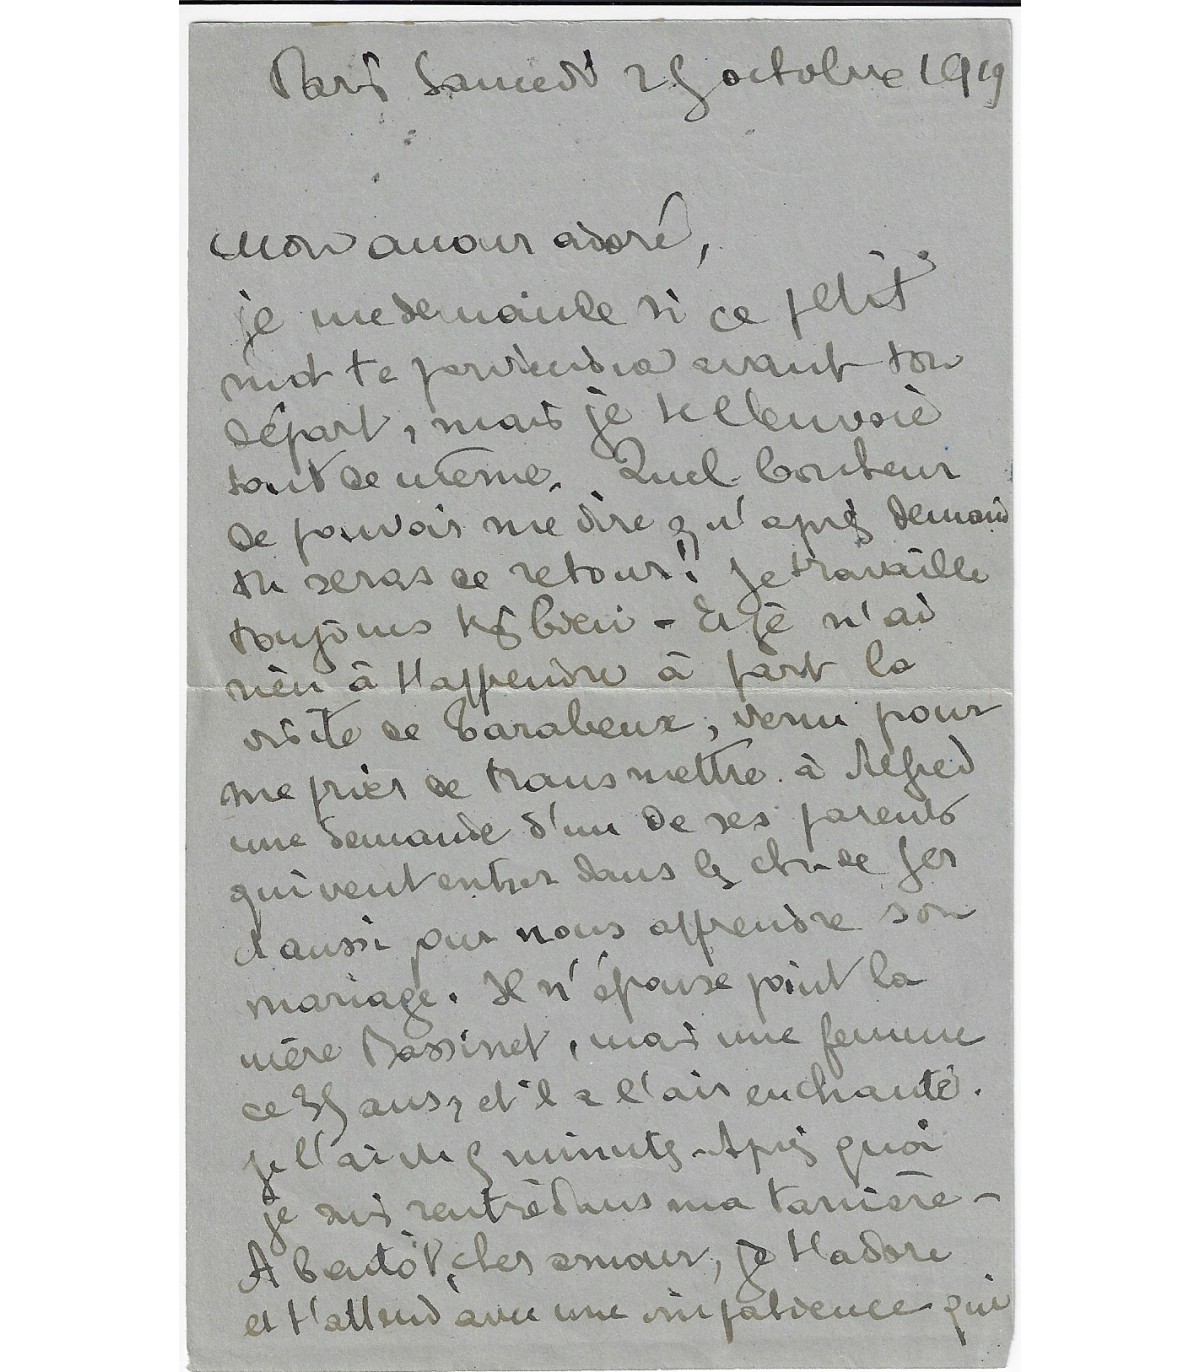 Paris Samedi 25 octobre 1919
Mon amour adoré,
je me demande si ce petit
mot te parviendra avant ton
départ, mais je te l'envoie
tout de même. Quel bonheur
de pouvoir me dire qu'après demain
tu seras de retour! Je travaille
toujours très bien - Et je n'ai
rien à t'apprendre à part la
visite de Tarabeux, venu pour
me prier de transmettre à Alfred
une demande d'un de ses parents
qui veut entrer dans les ch. de fer
et aussi pour nous apprendre son
mariage. Il n'épouse point la
mère Bassinet, mais une femme
de 35 ans, et il a l'air enchanté.
Je l'ai vu 5 minutes - Après quoi
je suis rentré dans ma tanière -
A bientôt, cher amour, je t'adore
et t'attend avec une impatience qui